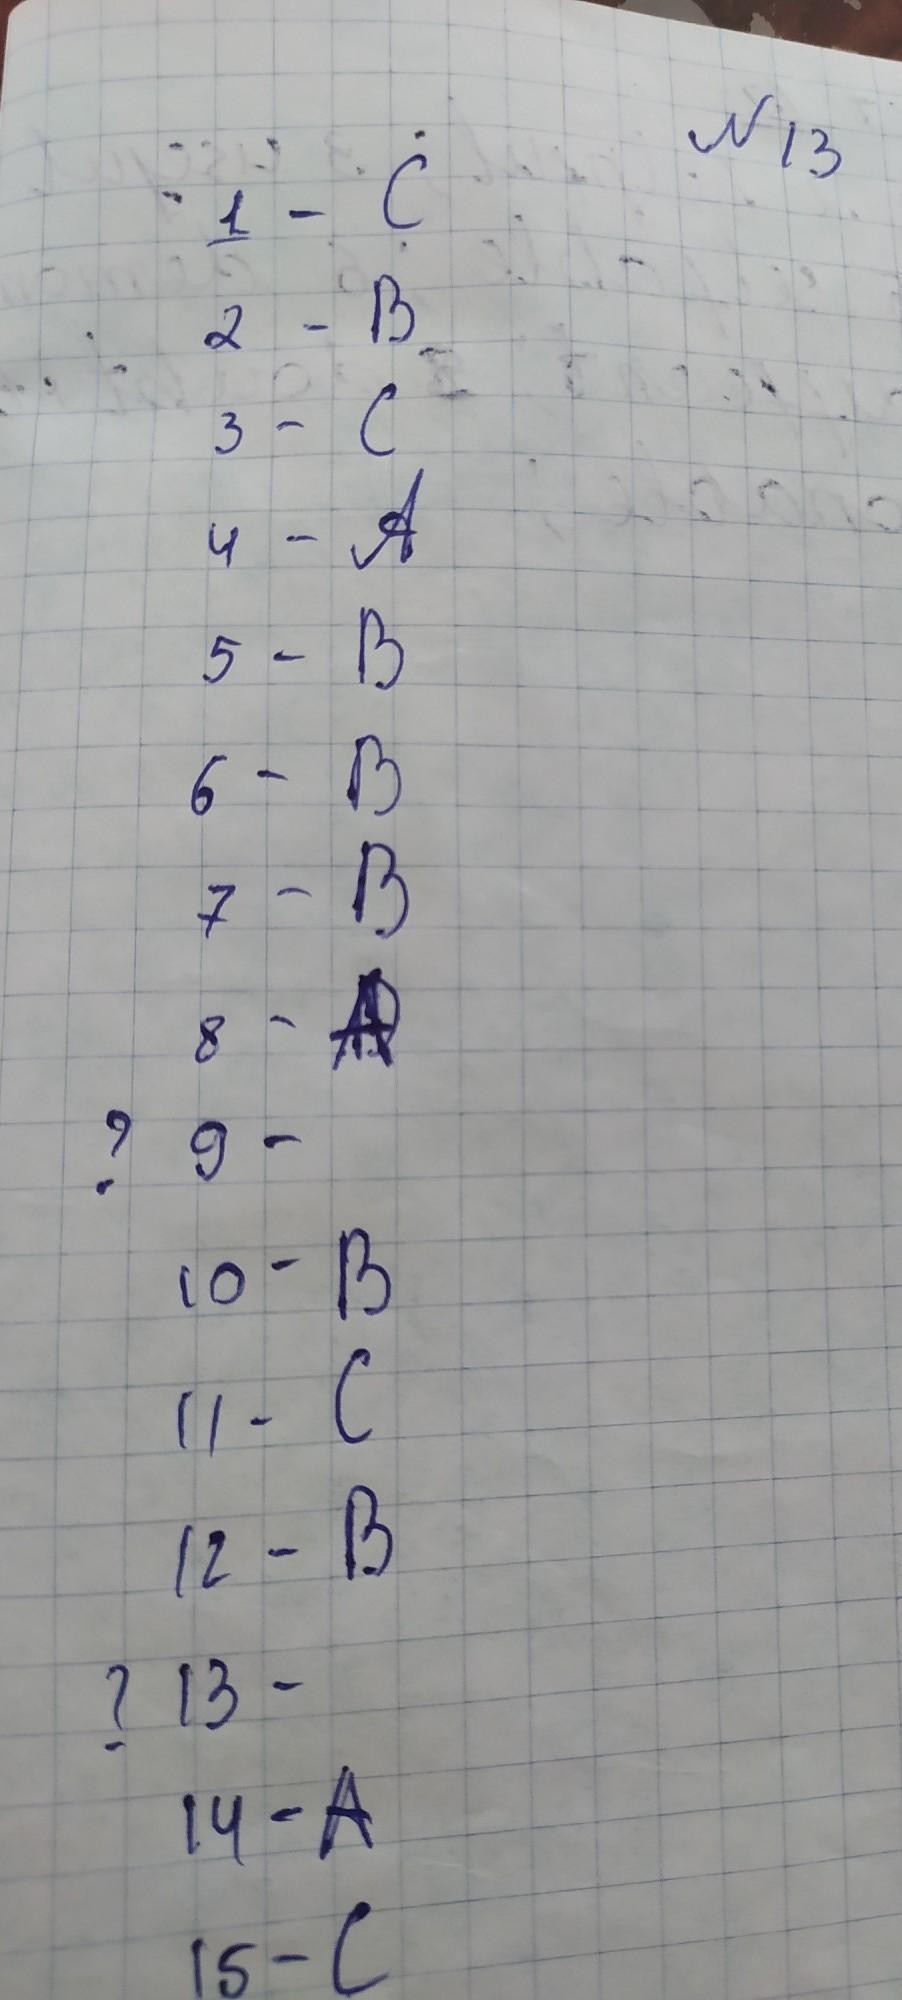 № 13
1 - C
2 - B
3 - C
4 - A
5 - B
6 - B
7 - B
8 - A
? 9 -
10 - B
11 - C
12 - B
? 13 -
14 - A
15 - C